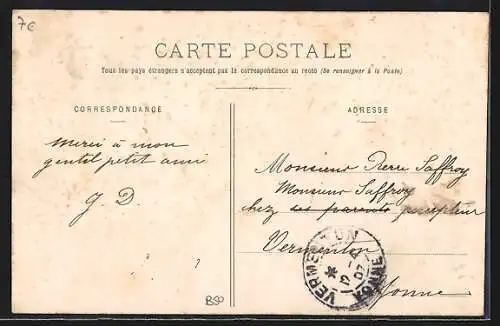 7€
CARTE POSTALE
Tous les pays étrangers n'acceptent pas la correspondance au recto (Se renseigner à la Poste)
CORRESPONDANCE
ADRESSE
Merci à mon
gentil petit ami
J. D.
Monsieur Pierre Saffroy
Monsieur Saffroy
chez ses parents percepteur
Vermenton
Yonne
VERMENTON
YONNE
B50